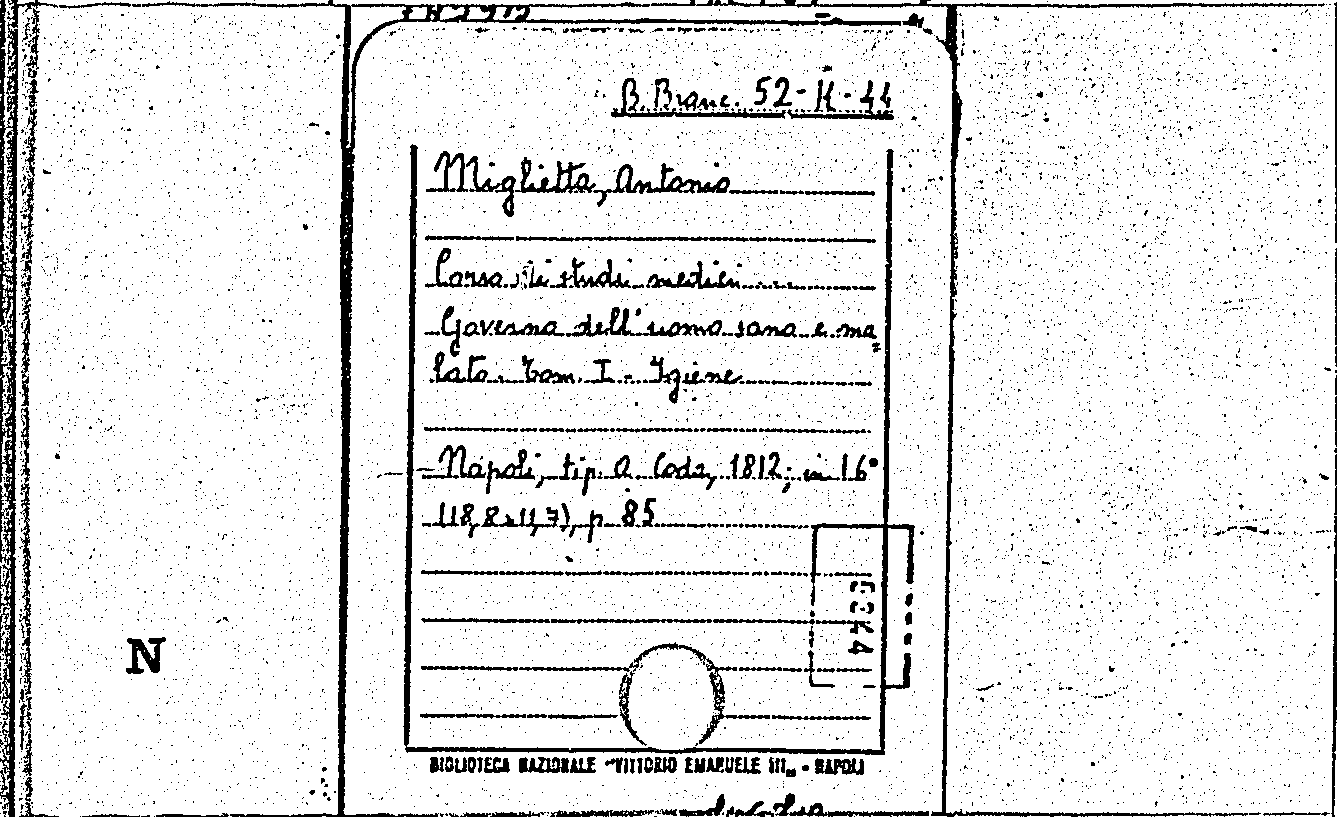 B. Branc. 52-H-44
Miglietta, Antonio
Corso di studi medici....
Governo dell'uomo sano e ma=
lato. Tom. I - Igiene
Napoli, tip. A. Coda, 1812; in 16°
(18,8x11,7), p. 85
5344
N
BIBLIOTECA NAZIONALE "VITTORIO EMANUELE III" - NAPOLI